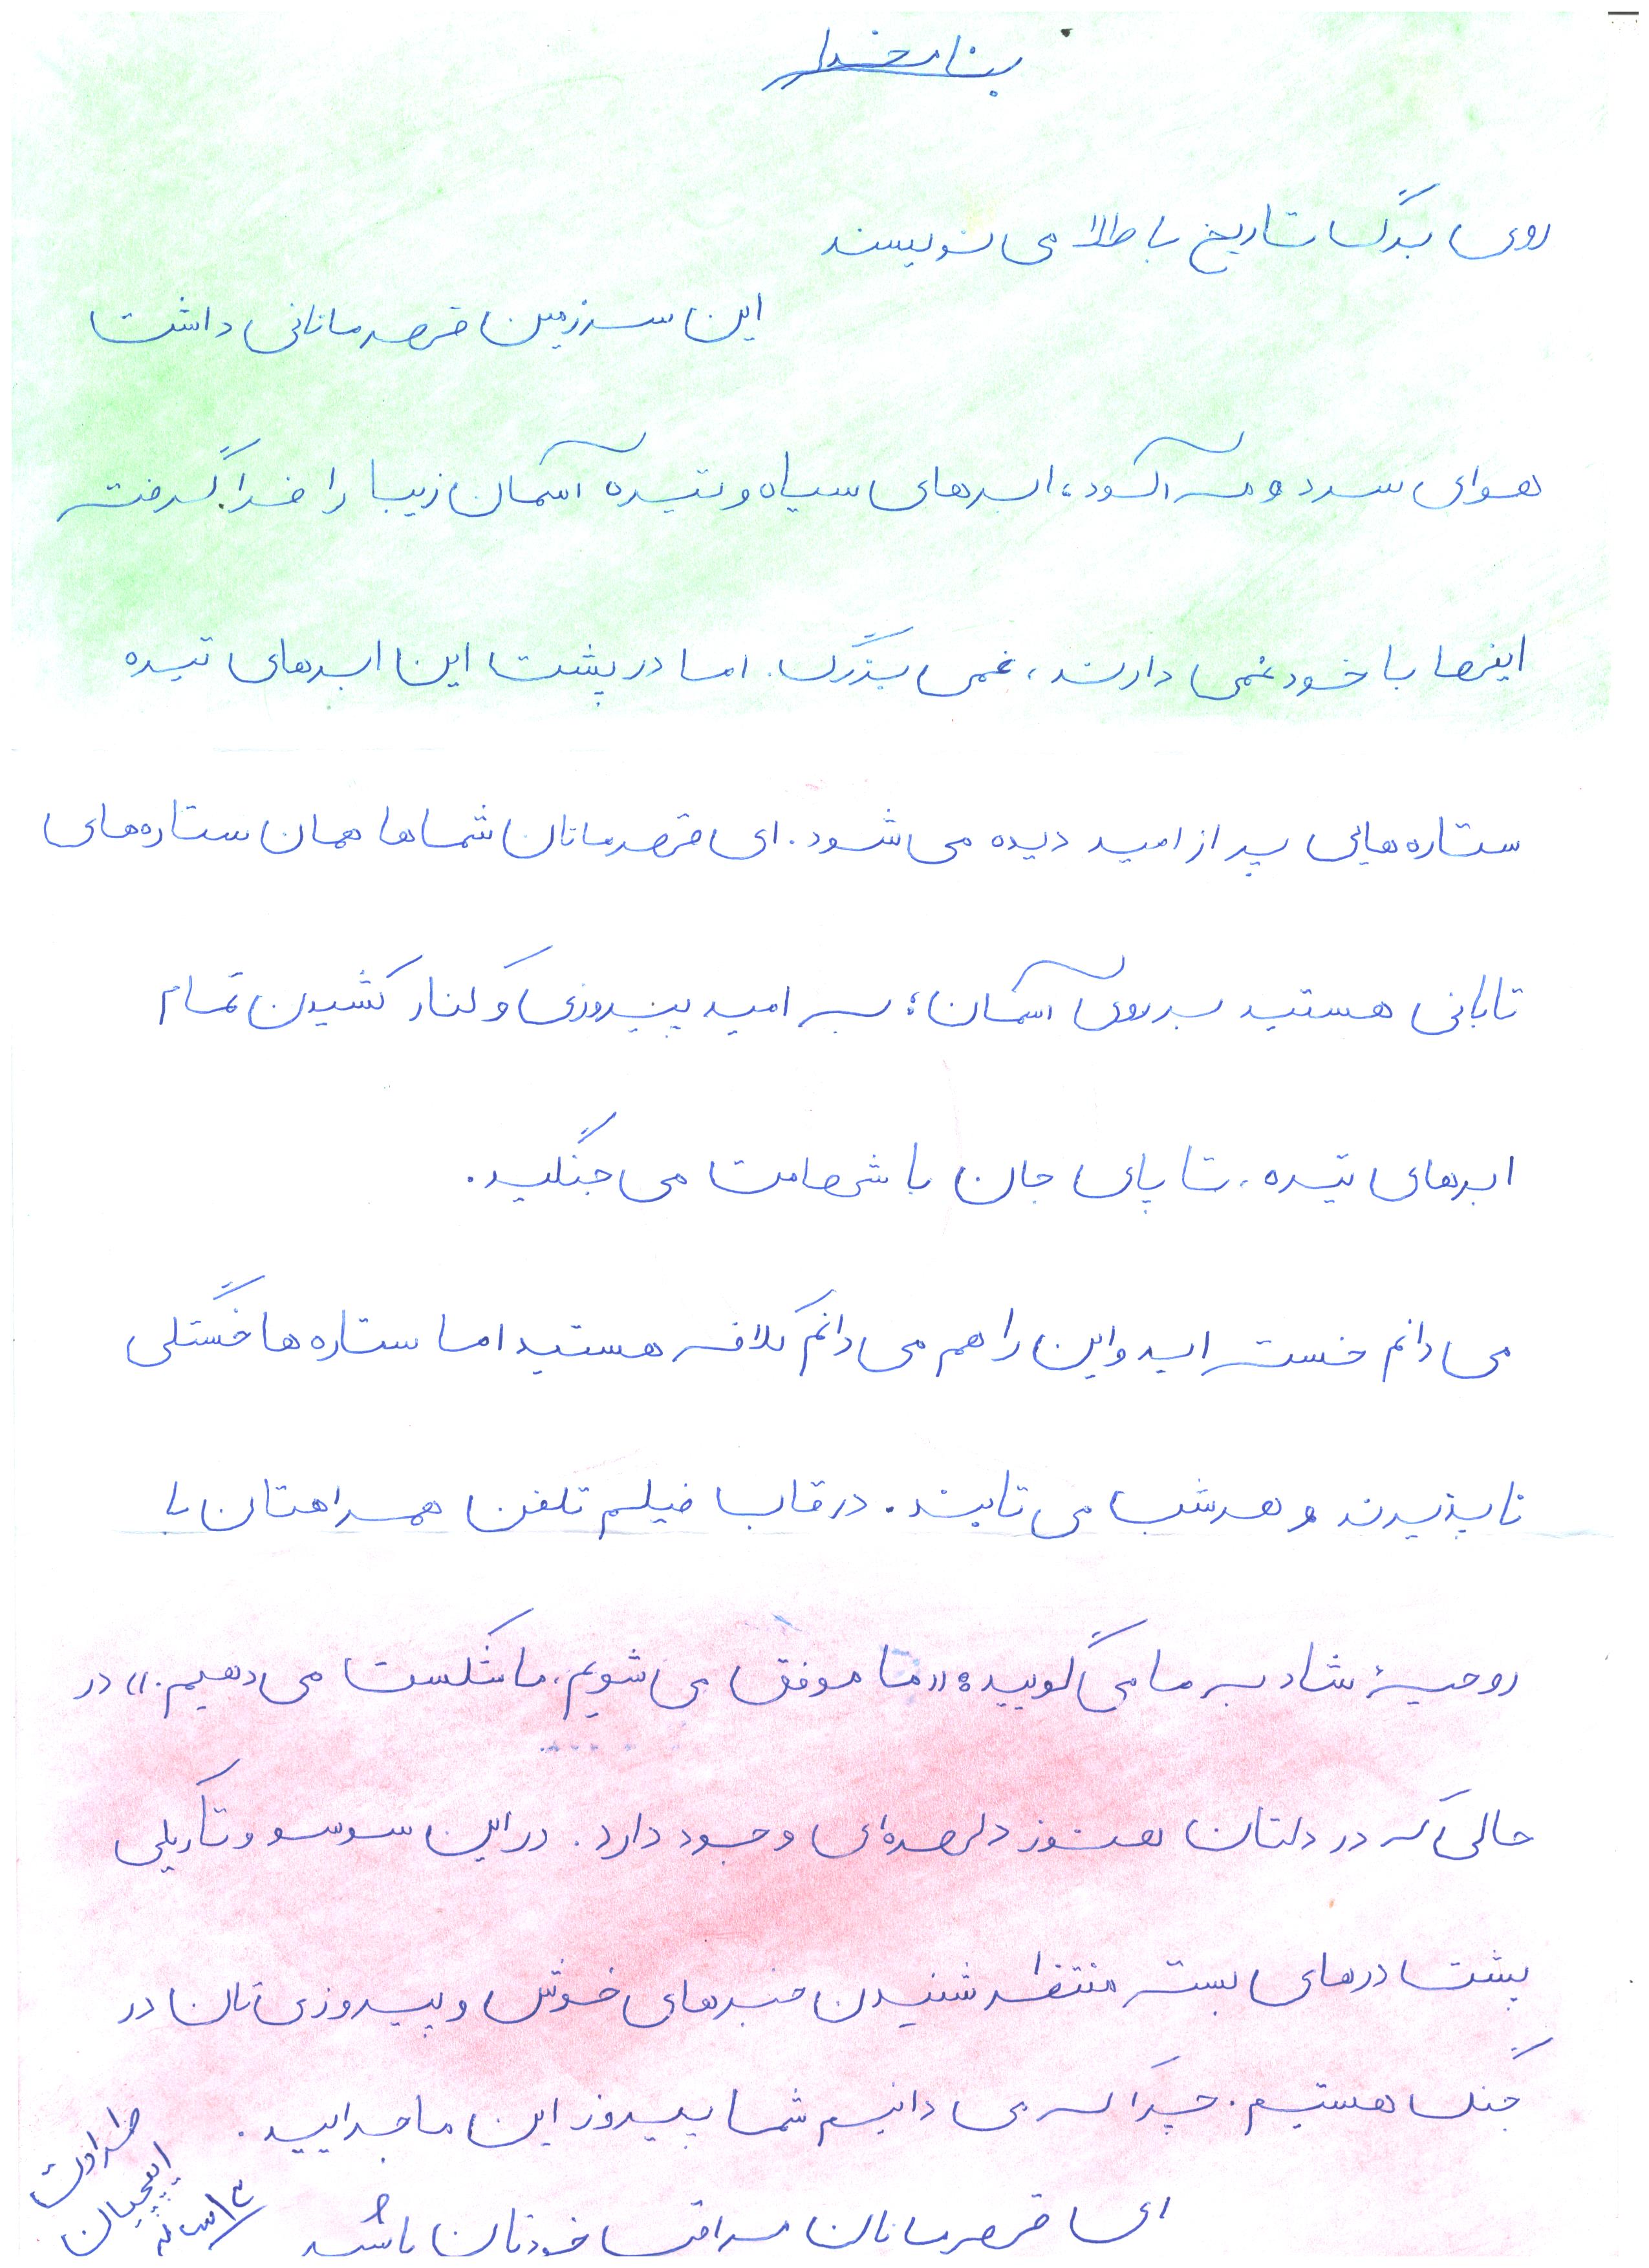 بنام خدا
روی برگ تاریخ با طلا می نویسند
این سرزمین قهرمانانی داشت
هوای سرد و مه آلود، ابرهای سیاه و تیره آسمان زیبا را فرا گرفته
اینها با خود غمی دارند، غمی بزرگ. اما در پشت این ابرهای تیره
ستاره هایی پر از امید دیده می شود. ای قهرمانان شماها همان ستاره های
تابانی هستید بر روی آسمان؛ به امید پیروزی و کنار کشیدن تمام
ابرهای تیره، تا پای جان با شهامت می جنگید.
می دانم خسته اید و این را هم می دانم کلافه هستید اما ستاره ها خستگی
ناپذیرند و هر شب می تابند. در قاب فیلم تلفن همراهتان با
روحیهٔ شاد به ما می گویید: «ما موفق می شویم، ما شکست می دهیم.» در
حالی که در دلتان هنوز دلهره ای وجود دارد. در این سوسو و تاریکی
پشت درهای بسته منتظر شنیدن خبرهای خوش و پیروزی تان در
جنگ هستیم. چرا که می دانیم شما پیروز این ماجرایید.
ای قهرمانان مراقب خودتان باشید
طراوت
ایپچیان
۱۳ ساله